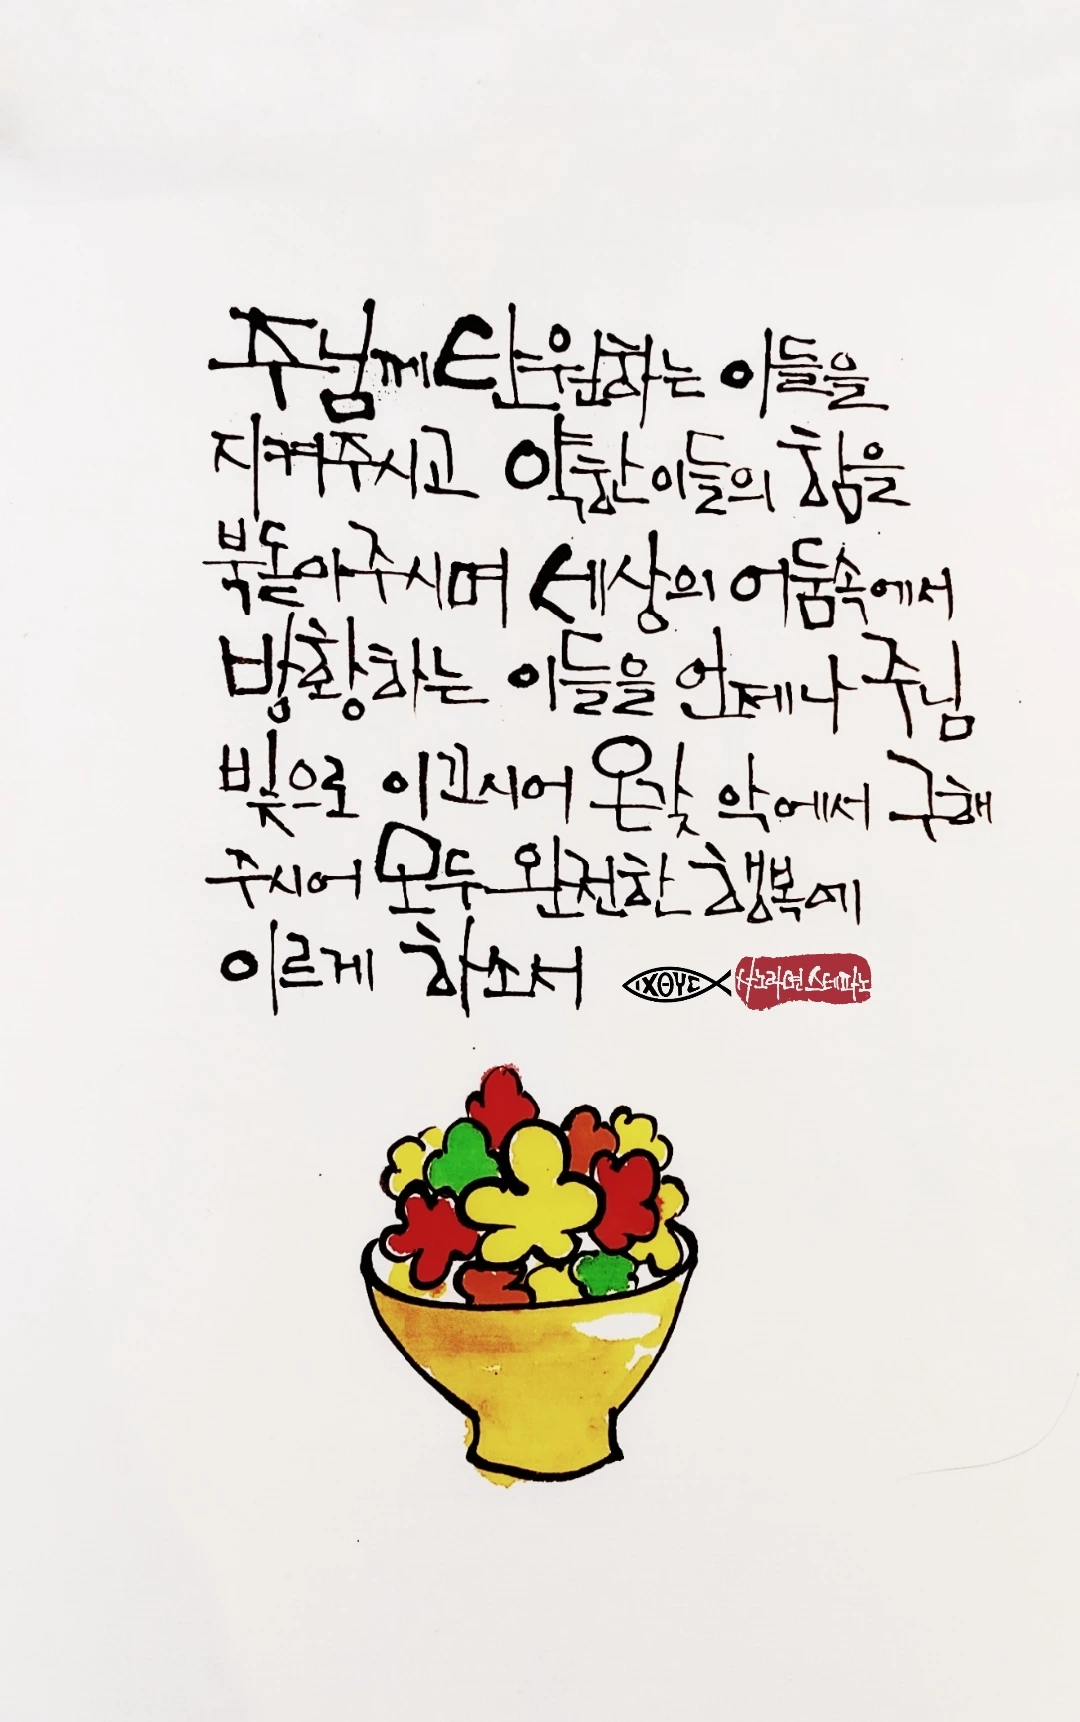 주님께 탄원하는 이들을
지켜주시고 약한이들의 힘을
북돋아주시며 세상의 어둠속에서
방황하는 이들을 언제나 주님
빛으로 이끄시어 온갖 악에서 구해
주시어 모두 완전한 행복에
이르게 하소서
ΙΧΘΥΣ
사노라면 스테파노